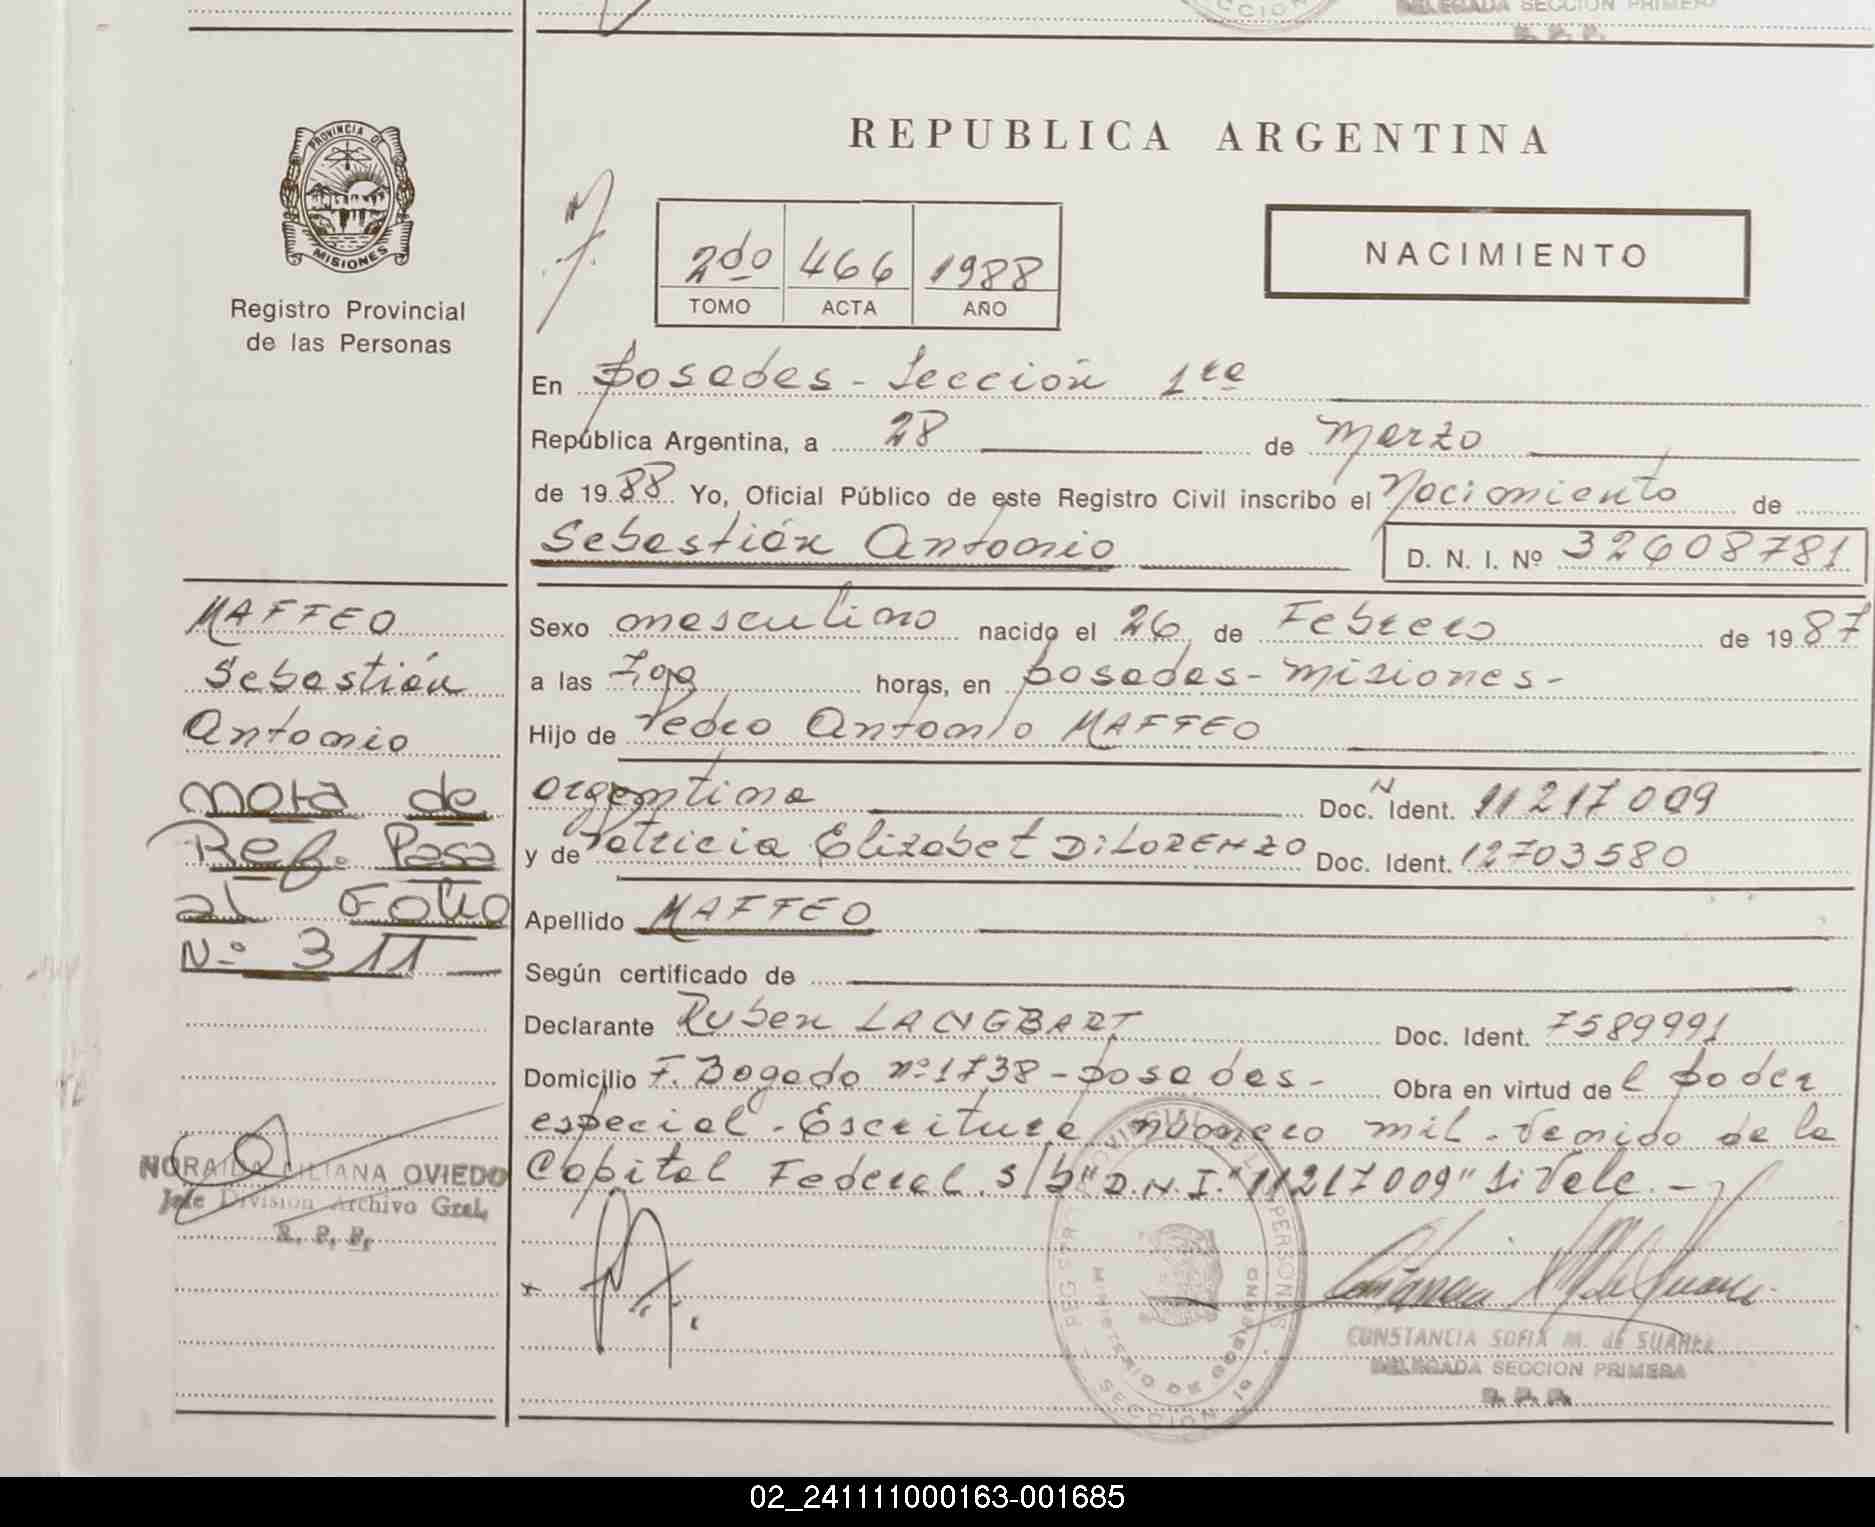 SECCION
DELEGADA SECCION PRIMERA
R. P. P.
PROVINCIA DE
MISIONES
Registro Provincial
de las Personas
REPUBLICA ARGENTINA
2do 466 1988
TOMO ACTA AÑO
NACIMIENTO
En Posadas - Sección 1ra
República Argentina, a 28 de Marzo
de 1988 Yo, Oficial Público de este Registro Civil inscribo el Nacimiento de
Sebastián Antonio D. N. I. Nº 32608781
MAFFEO
Sebastián
Antonio
Nota de
Ref. Pasa
al Folio
Nº 311
NORAIDA LILIANA OVIEDO
Jefe División Archivo Gral.
R. P. P.
Sexo masculino nacido el 26 de Febrero de 1987
a las 7,00 horas, en Posadas - Misiones -
Hijo de Pedro Antonio MAFFEO
argentina Doc. N Ident. 11217009
y de Patricia Elizabet Di LORENZO Doc. Ident. 12703580
Apellido MAFFEO
Según certificado de
Declarante Ruben LANGBART Doc. Ident. 7589991
Domicilio F. Bogado nº 1738 - Posadas - Obra en virtud de l poder
especial - Escritura número mil - Venido de la
Capital Federal. S/b "D.N.I." 11217009" Si Vale. -
REGISTRO PROVINCIAL DE LAS PERSONAS
MINISTERIO DE GOBIERNO
SECCION 1a
CONSTANCIA SOFIA M. de SUAREZ
DELEGADA SECCION PRIMERA
R. P. P.
02_241111000163-001685